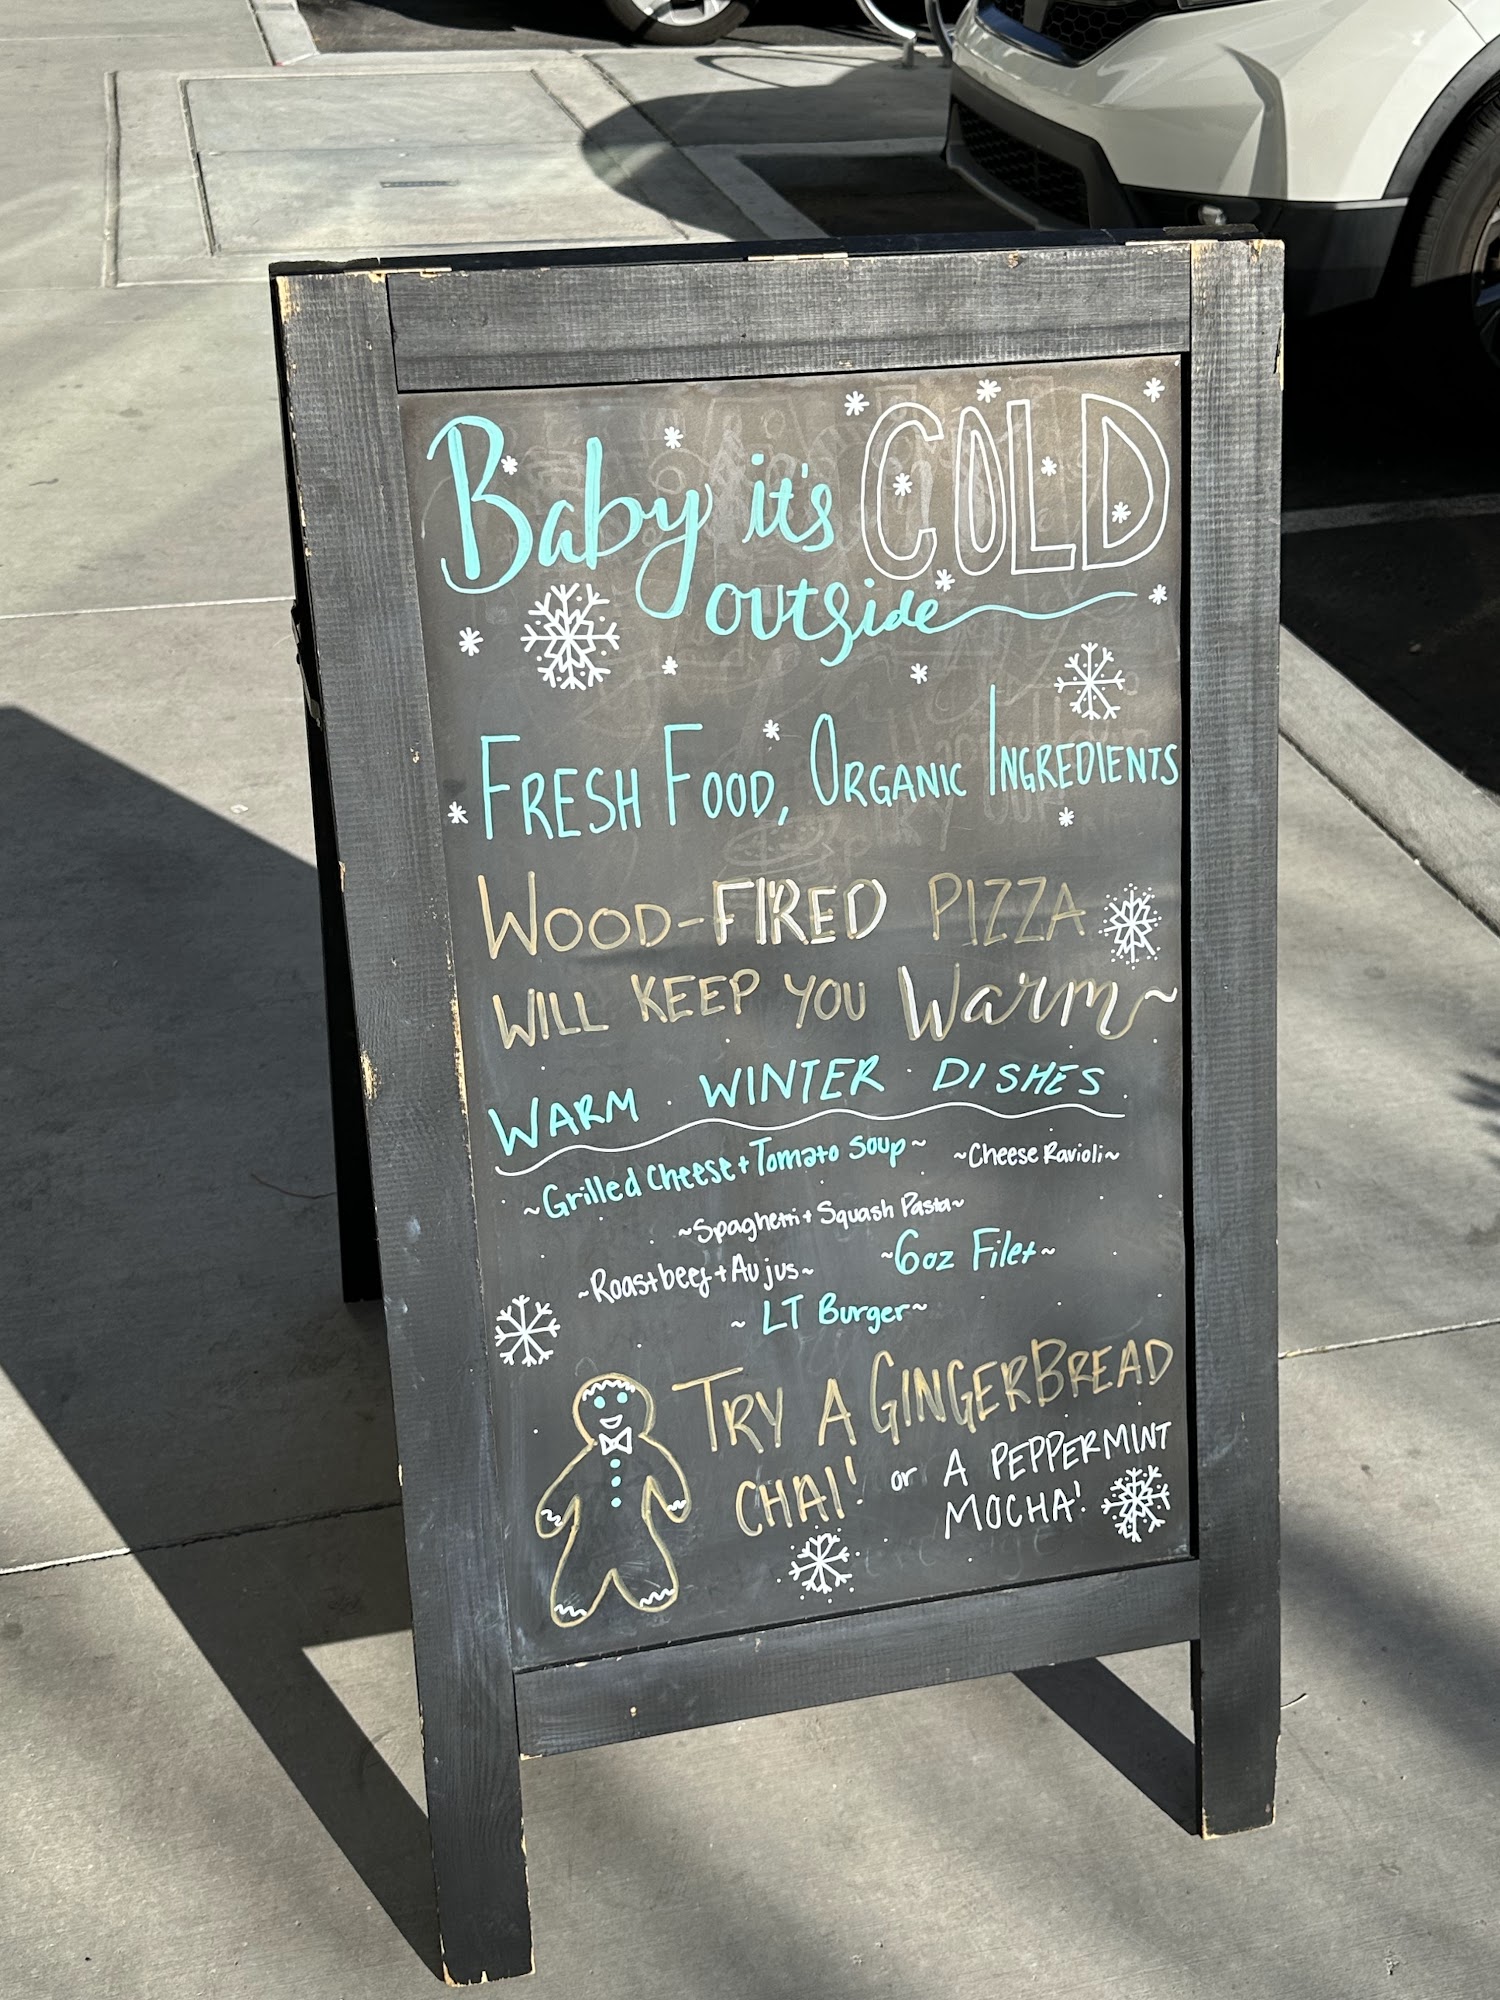 Baby it's COLD
outside
FRESH FOOD, ORGANIC INGREDIENTS
WOOD-FIRED PIZZA
WILL KEEP YOU Warm~
WARM WINTER DISHES
~Grilled Cheese + Tomato Soup~ ~Cheese Ravioli~
~Spaghetti + Squash Pasta~
~Roastbeef + Au jus~ ~6oz Filet~
~ LT Burger~
TRY A GINGERBREAD
CHAI! or A PEPPERMINT
MOCHA!